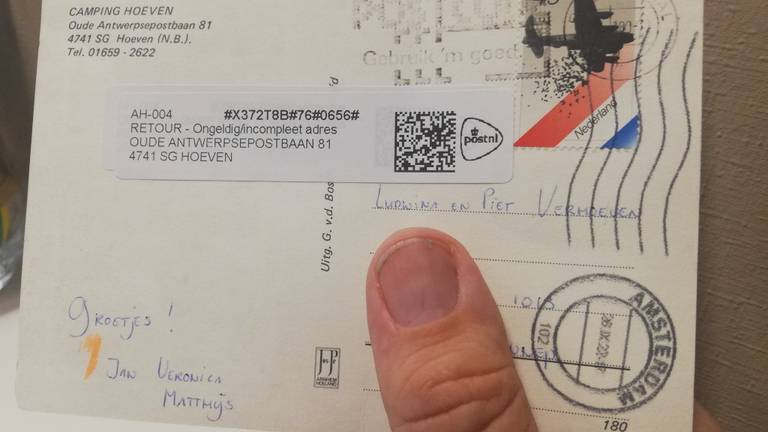 CAMPING HOEVEN
Oude Antwerpsepostbaan 81
4741 SG Hoeven (N.B.).
Tel. 01659 - 2622
Gebruik 'm goed
Nederland
AH-004 #X372T8B#76#0656#
RETOUR - Ongeldig/incompleet adres
OUDE ANTWERPSEPOSTBAAN 81
4741 SG HOEVEN
postnl
Uitg. G. v.d. Bos
Ludwina en Piet Vermoeven
Groetjes!
Jan Veronica
Matthijs
ARNHEM
HOLLAND
AMSTERDAM
102
180